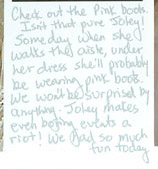 Check out the Pink boots.
Isn't that pure Joley!
Someday, when she
walks the aisle, under
her dress she'll probably
be wearing pink boots.
We won't be surprised by
anything. Joley makes
even boring events a
riot! We had so much
fun today.